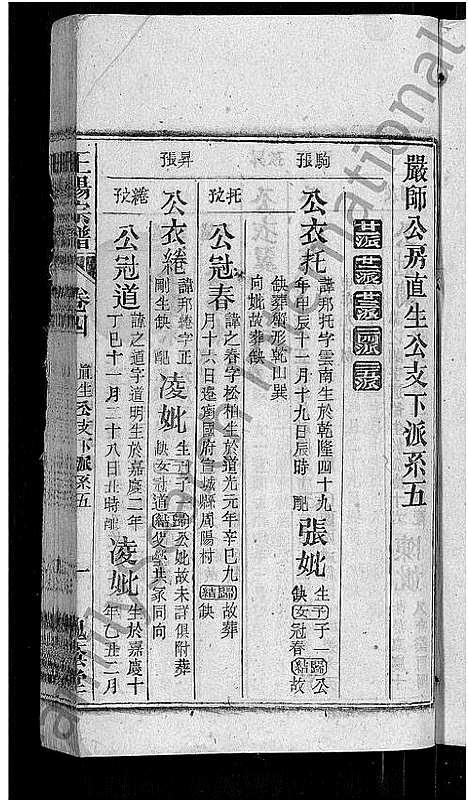 嚴師公房直生公支下派系五
駒張
公衣托
諱邦托字雲南生於乾隆四十九
年甲辰十一月十九日辰時 配
張妣
生子子一歸公
缺女冠春結故
缺葬蟹形乾山巽
向妣故葬缺
托次
公冠春
諱之春字松柏生於道光元年辛巳九
月十六日遷甯國府宣城縣周陽村
歸故葬
結缺
昇張
公衣綣
諱邦綣字正
剛生缺 配
凌妣
生子子一歸公妣故未詳俱附葬
缺女冠道結
共冢同向
綣次
公冠道
諱之道字道明生於嘉慶二年
丁巳十一月二十八日
時配
凌妣
生於嘉慶十
年乙丑二月
王陽宗譜
卷四
直生公支下派系五
一